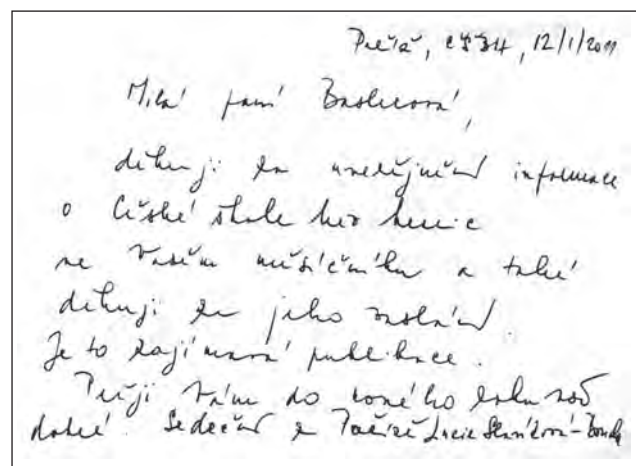 Paříž, ČŠBH, 12/1/2011
Milá paní Baslerová,
děkuji za uveřejnění informace
o České škole bez hranic
ve Vašem měsíčníku a také
děkuji za jeho zaslání.
Je to zajímavá publikace.
Přeji Vám do nového roku vše
dobré. Srdečně z Paříže Lucie Slavíková-Boucher